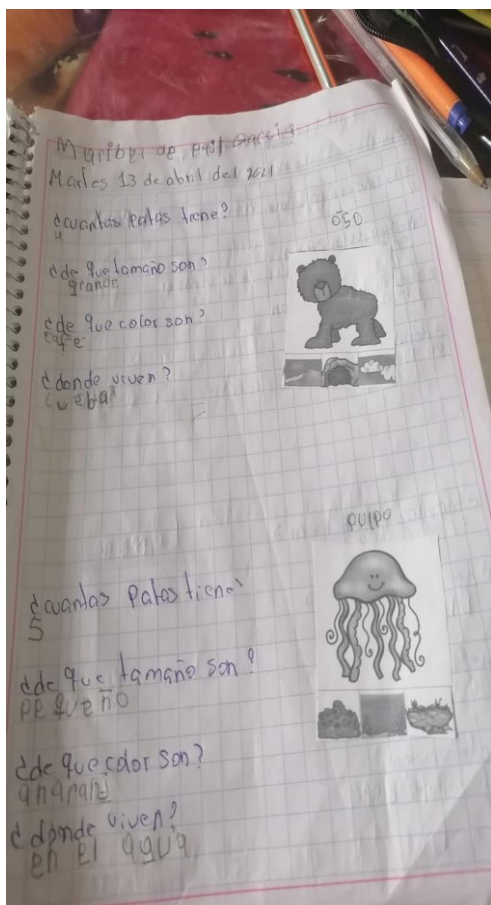 Maribel de
Martes 13 de abril del 2021
¿cuantas patas tiene?
4
oso
¿de que tamaño son?
grande
¿de que color son?
cafe
¿donde viven?
cueba
pulpo
¿cuantas patas tiene?
5
¿de que tamaño son?
pequeño
¿de que color son?
¿donde viven?
en el agua